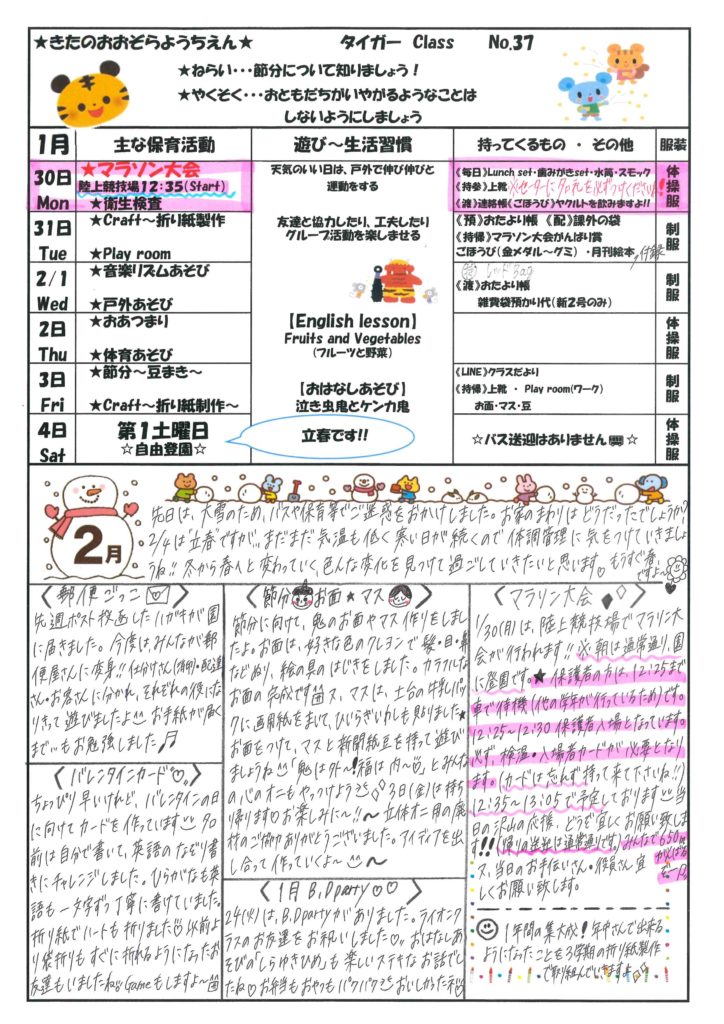 ★きたのおおぞらようちえん★　タイガー Class　No.37
★ねらい・・・節分について知りましょう！
★やくそく・・・おともだちがいやがるようなことは
しないようにしましょう
1月　主な保育活動　遊び～生活習慣　持ってくるもの ・ その他　服装
30日 Mon
★マラソン大会
陸上競技場12：35(Start)
★衛生検査
天気のいい日は、戸外で伸び伸びと
運動をする
《毎日》Lunch set・歯みがきset・水筒・スモック
《持参》上靴 ※セーターにタグ札を必ずつけてください!
《渡》連絡帳《ごほうび》ヤクルトを飲みますよ!!
体操服
31日 Tue
★Craft～折り紙製作
★Play room
友達と協力したり、工夫したり
グループ活動を楽しませる
《預》おたより帳 《配》課外の袋
《持帰》マラソン大会がんばり賞
ごほうび(金メダル～グミ) ・月刊絵本、付録
制服
2/1 Wed
★音楽リズムあそび
★戸外あそび
レッドBag
《渡》おたより帳
雑費袋預かり代(新2号のみ)
制服
2日 Thu
★おあつまり
★体育あそび
【English lesson】
Fruits and Vegetables
(フルーツと野菜)
体操服
3日 Fri
★節分～豆まき～
★Craft～折り紙制作～
【おはなしあそび】
泣き虫鬼とケンカ鬼
《LINE》クラスだより
《持帰》上靴 ・ Play room(ワーク)
お面・マス・豆
制服
4日 Sat
第1土曜日
☆自由登園☆
立春です!!
☆バス送迎はありません☆
体操服
2月
先日は、大雪のため、バスや保育等でご迷惑をおかけしました。お家のまわりはどうだったでしょうか?
2/4は立春ですが、まだまだ気温も低く寒い日が続くので体調管理に気をつけていきましょ
うね!! 冬から春へと変わっていく色んな変化を見つけて過ごしていきたいと思います♡もうすぐ春ですよ～
〈郵便ごっこ〉
先週ポスト投函したハガキが園
に届きました。今度は、みんなが郵
便屋さんに変身!! 仕分けさん・配達
さん・お客さんに分かれ、それぞれの役にな
りきって遊びましたよ お手紙が届く
まで…もお勉強しました♬
〈バレンタインカード♡。〉
ちょっぴり早いけれど、バレンタインの日
に向けてカードを作っています 名
前は自分で書いて、英語のなぞり書
きにチャレンジしました。ひらがなも英
語も一文字ずつ丁寧に書けていました。
折り紙でハートも折りました♡以前よ
り袋折りもすぐに折れるようになったお
友達もいましたねGameもしますよ～
〈節分 お面★マス〉
節分に向けて、鬼のお面やマス作りをしまし
たよ。お面は、好きな色のクレヨンで髪・目・鼻
などぬり、絵の具のはじきをしました。カラフルな
お面の完成です 又、マスは、土台の牛乳パッ
クに画用紙をまいて、ひいらぎいわしも貼りました★
お面をつけて、マスと新聞紙豆を持って遊び
ましょうね「鬼は外～!福は内～♡」とみんな
の心のオニもやっつけよう 3日(金)は持ち
帰ります♡お楽しみに～!!～立体オニ用の廃
材のご協力ありがとうございました。アイディアを出
し合って作っていくよ～
〈1月 B.D party♡♡〉
24(火)は、B.D partyがありました。ライオンク
ラスのお友達をお祝いしました♡。おはなしあ
そびの「しらゆきひめ」も楽しいステキなお話でし
たね♡お弁当もおやつもパクパク おいしかったネ
〈マラソン大会〉
1/30(月)は、陸上競技場でマラソン大
会が行われます!! ※朝は通常通り、園
に登園です。★保護者の方は、12:25まで
車で待機(他の学年が行っているため)です。
12:25～12:30 保護者入場となっています。
必ず、検温・入場者カードが必要となり
ます。(カードは忘れず持って来て下さいね!!)
12:35～13:05で予定しております 当
日の沢山の応援、どうぞ宜しくお願い致しま
す!!(帰りの送迎は通常通りです)みんなで650m
がんばるぞ
又、当日のお手伝いさん。役員さん宜
しくお願い致します。
1年間の集大成!年中さんで出来る
ようになったことを3学期の折り紙製作
で取り組んでいきますよ